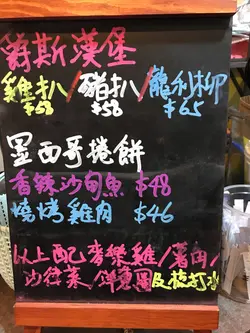 爵斯漢堡
雞扒/豬扒/龍利柳
$58 $58 $65
墨西哥捲餅
香辣沙甸魚 $48
燒烤雞肉 $46
以上配麥樂雞/薯角/
沙律菜/洋蔥圈及梳打水